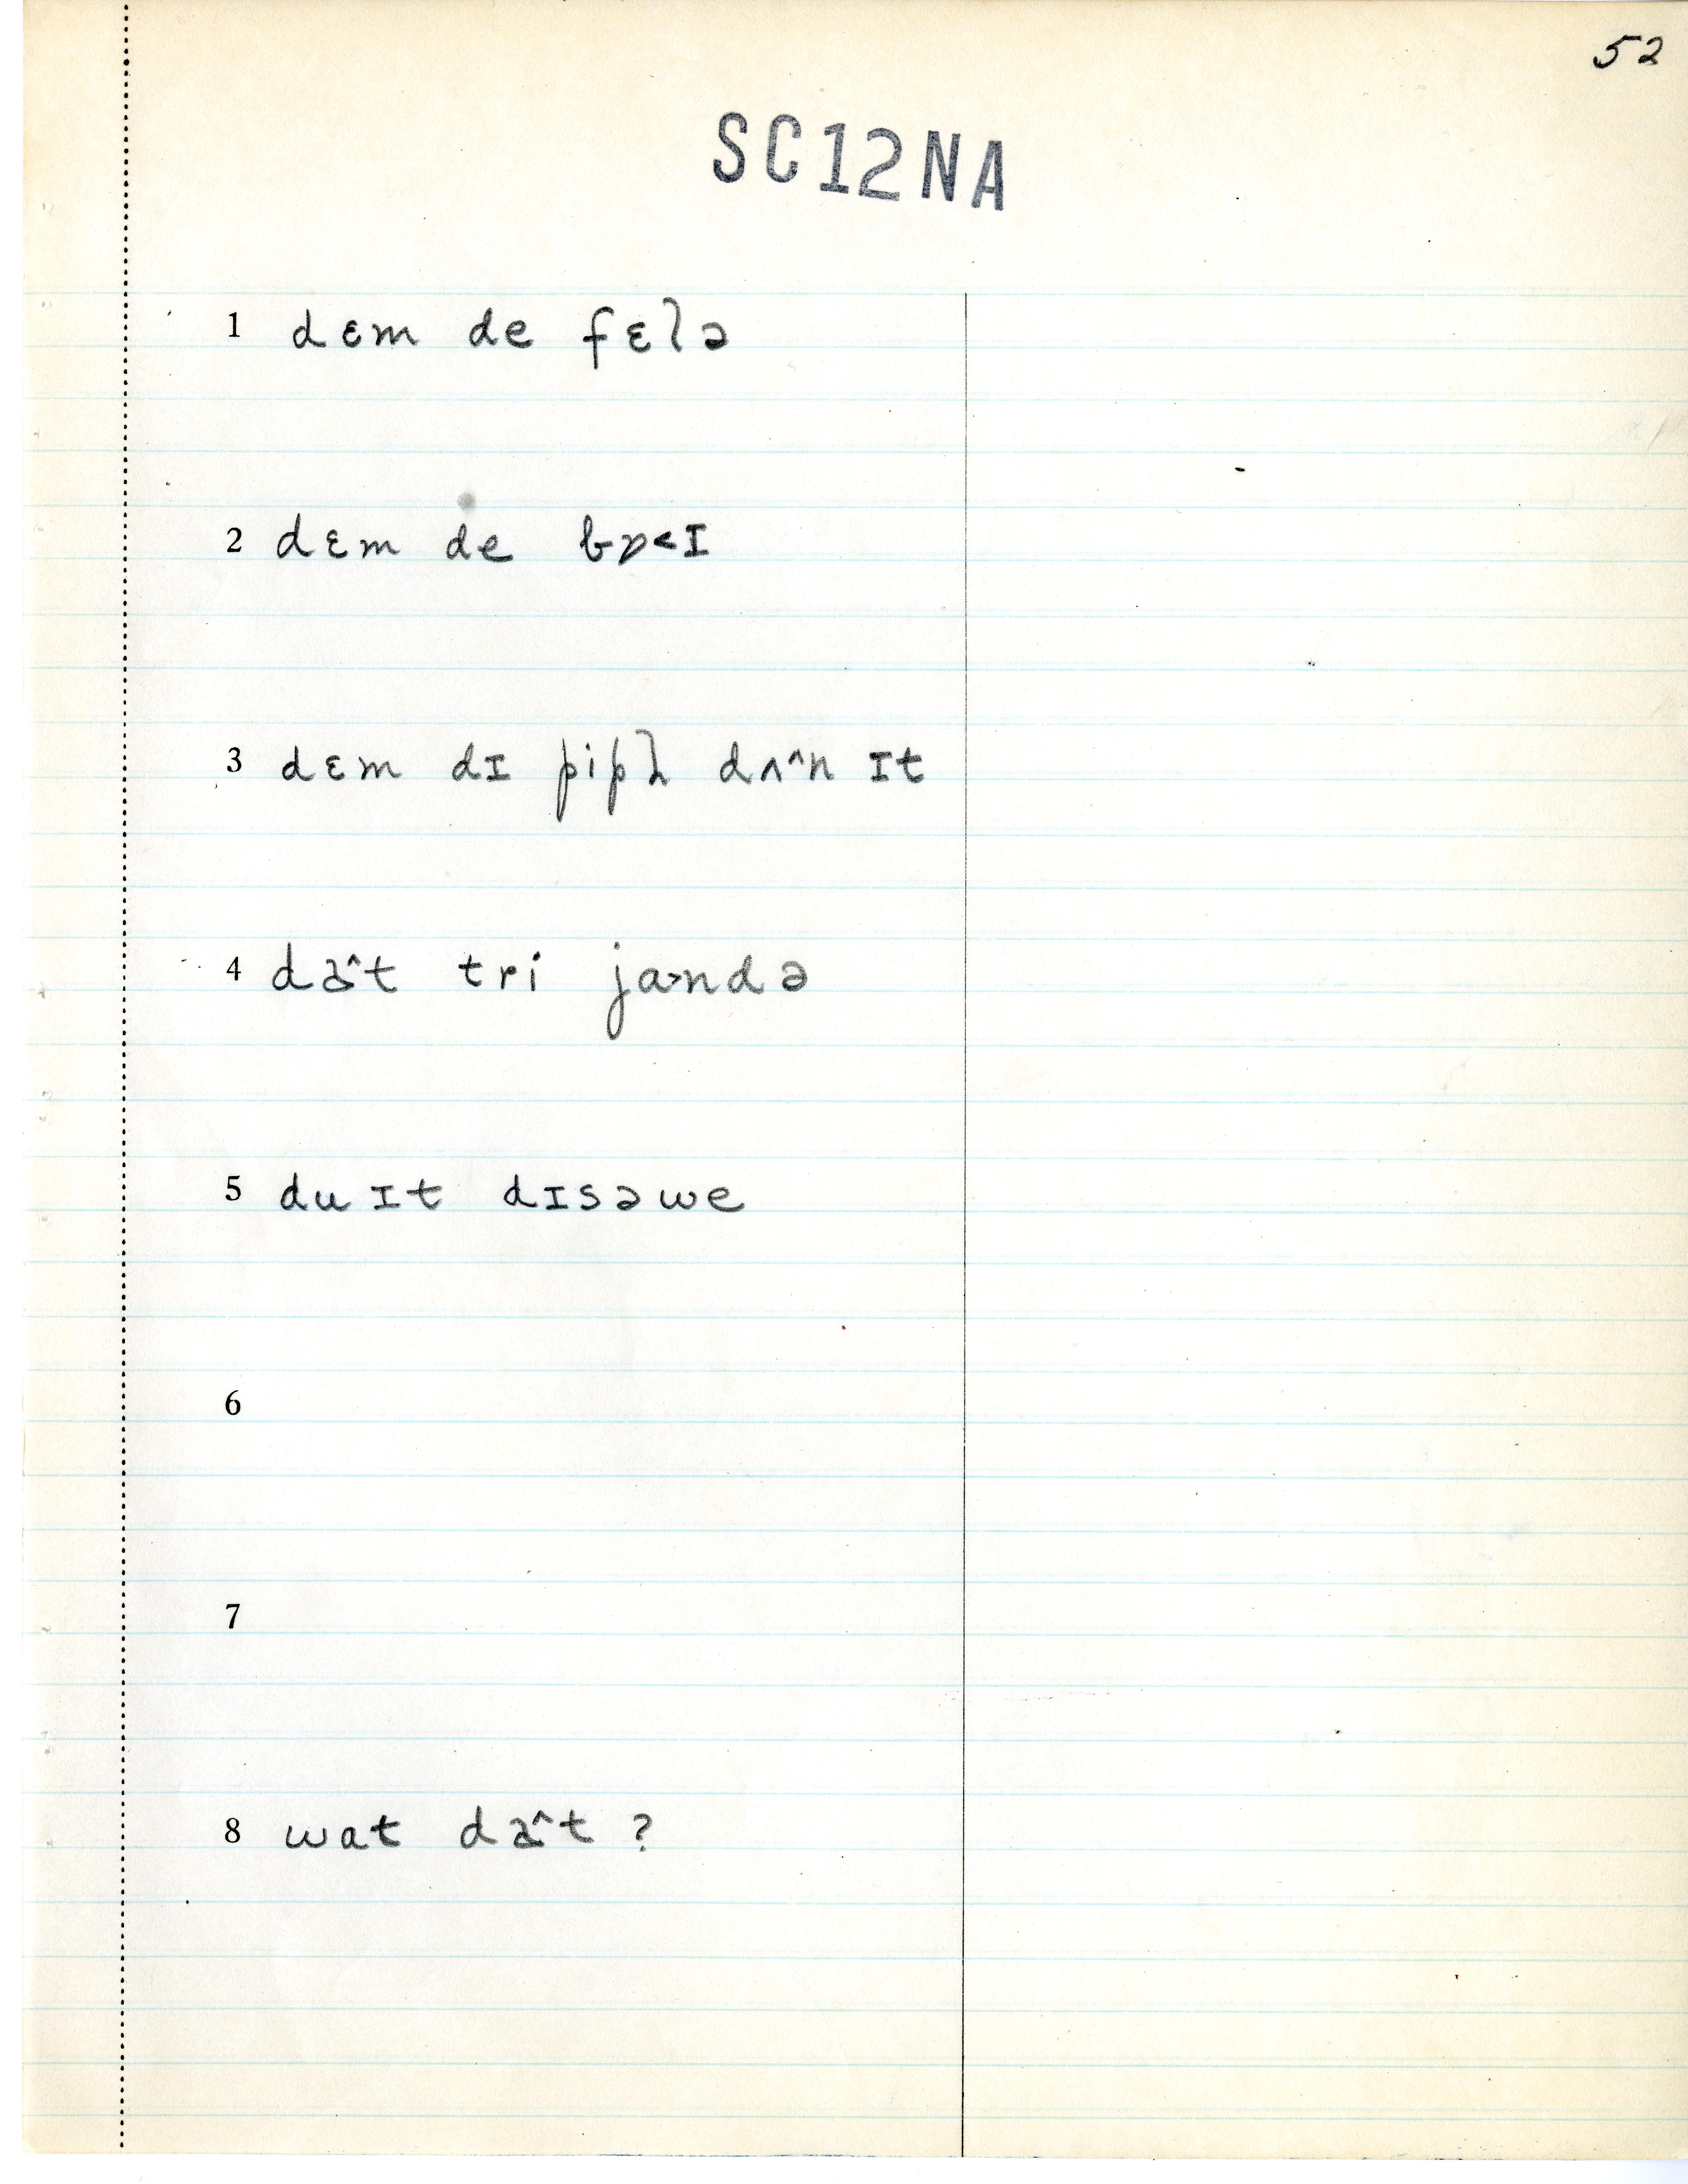 52
SC12NA
1 dɛm de fɛlə
2 dɛm de bɒ˂ɪ
3 dɛm dɪ pipl̩ dʌ^n ɪt
4 da^t tri ja˃ndə
5 du ɪt dɪsəwe
6
7
8 wat da^t ?